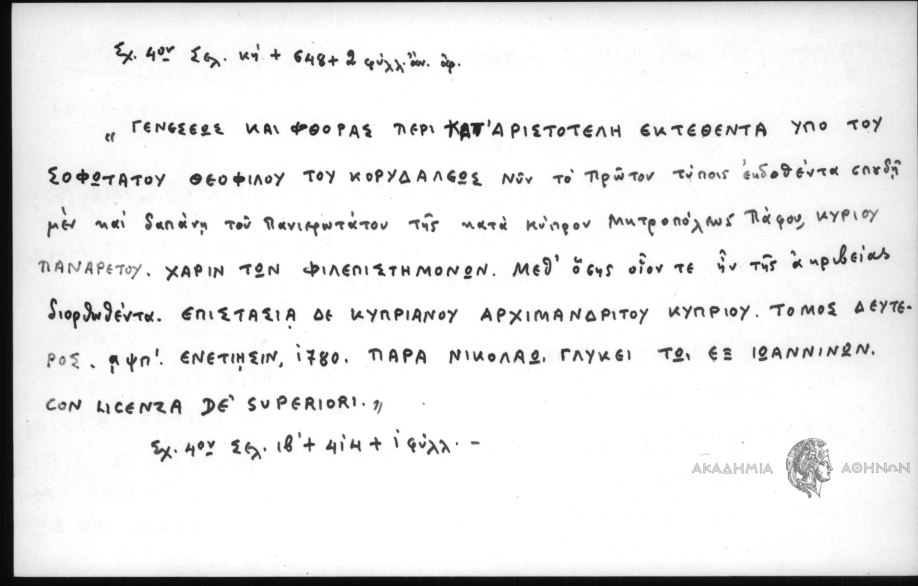 Σχ. 4ον Σελ. κή + 648 + 2 φύλλ. ἄν. ἀρ.
„ ΓΕΝΕΣΕΩΣ ΚΑΙ ΦΘΟΡΑΣ ΠΕΡΙ ΚΑΤ' ΑΡΙΣΤΟΤΕΛΗ ΕΚΤΕΘΕΝΤΑ ΥΠΟ ΤΟΥ
ΣΟΦΩΤΑΤΟΥ ΘΕΟΦΙΛΟΥ ΤΟΥ ΚΟΡΥΔΑΛΕΩΣ Νῦν τὸ πρῶτον τύποις ἐκδοθέντα σπυδῇ
μὲν καὶ δαπάνῃ τοῦ Πανιερωτάτου τῆς κατὰ Κύπρον Μητροπόλεως Πάφου, ΚΥΡΙΟΥ
ΠΑΝΑΡΕΤΟΥ. ΧΑΡΙΝ ΤΩΝ ΦΙΛΕΠΙΣΤΗΜΟΝΩΝ. Μεθ' ὅσης οἷον τε ἦν τῆς ἀκριβείας
διορθωθέντα. ΕΠΙΣΤΑΣΙᾼ ΔΕ ΚΥΠΡΙΑΝΟΥ ΑΡΧΙΜΑΝΔΡΙΤΟΥ ΚΥΠΡΙΟΥ. ΤΟΜΟΣ ΔΕΥΤΕ-
ΡΟΣ. ͵αψπ'. ΕΝΕΤΙῌΣΙΝ, 1780. ΠΑΡΑ ΝΙΚΟΛΑΩι ΓΛΥΚΕΙ ΤΩι ΕΞ ΙΩΑΝΝΙΝΩΝ.
CON LICENZA DE' SUPERIORI. „
Σχ. 4ον Σελ. ιβ' + 414 + 1 φύλλ. –
ΑΚΑΔΗΜΙΑ ΑΘΗΝΩΝ